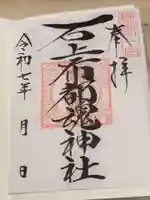 奉拝
石上布都魂神社
令和七年 月 日